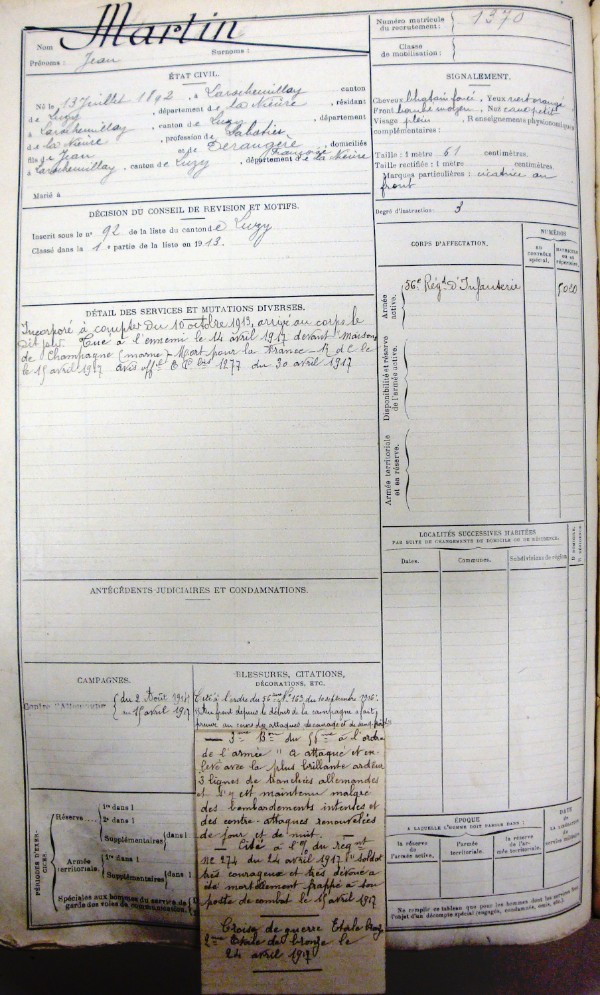 Nom Martin
Prénoms : Jean Surnoms :
ÉTAT CIVIL.
Né le 13 Juillet 1892, à Larochemillay, canton
de Luzy, département de la Nièvre, résidant
à Larochemillay, canton de Luzy, département
de la Nièvre, profession de Sabotier
fils de Jean et de Françoise, domiciliés
à Larochemillay, canton de Luzy, département de la Nièvre
Marié à
DÉCISION DU CONSEIL DE REVISION ET MOTIFS.
Inscrit sous le n° 92 de la liste du canton de Luzy
Classé dans la 1e partie de la liste en 1913.
DÉTAIL DES SERVICES ET MUTATIONS DIVERSES.
Incorporé à compter du 10 octobre 1913, arrivé au corps le
dit jour. Tué à l'ennemi le 14 avril 1917 devant Maisons
de Champagne (marne) Mort pour la France
le 15 avril 1917 avis off 1277 du 30 avril 1917
ANTÉCÉDENTS JUDICIAIRES ET CONDAMNATIONS.
CAMPAGNES.
Contre l'Allemagne du 2 Août 1914
au 15 avril 1917
BLESSURES, CITATIONS,
DÉCORATIONS, ETC.
Cité à l'ordre du 56me N° 163 du 10 septembre 1916:
depuis le début de la campagne a fait
preuve au cours des attaques de courage et de sang-froid
— 3me Bon du 56me à l'ordre
de l'armée " A attaqué et en-
levé avec la plus brillante ardeur
3 lignes de tranchées allemandes
et s'y est maintenu malgré
des bombardements intenses et
des contre-attaques renouvelées
de jour et de nuit. —
— Cité à l'o/ du regmt
No 274 du 24 avril 1917. "Soldat
très courageux et très dévoué
a été mortellement frappé à son
poste de combat le 15 avril 1917
Croix de guerre Étoile bronze
2me Étoile de bronze le
24 avril 1917
PÉRIODES D'EXERCICES
Réserve
1re dans l
2e dans l
Supplémentaires dans l
Armée territoriale.
1re dans l
Supplémentaires dans l
Spéciales aux hommes du service de
garde des voies de communication.
Numéro matricule
du recrutement : 1370
Classe
de mobilisation :
SIGNALEMENT.
Cheveux châtain foncé, Yeux vert orangé
Front moyen, Nez petit
Visage plein, Renseignements physionomiques
complémentaires :
Taille : 1 mètre 61 centimètres.
Taille rectifiée : 1 mètre centimètres
Marques particulières : cicatrice au
front
Degré d'instruction : 3
CORPS D'AFFECTATION.
NUMÉROS
AU CONTRÔLE SPÉCIAL.
Armée active.
56e Régt d'Infanterie
Disponibilité et réserve de l'armée active.
Armée territoriale et sa réserve.
LOCALITÉS SUCCESSIVES HABITÉES
PAR SUITE DE CHANGEMENTS DE DOMICILE OU DE RÉSIDENCE.
Dates. Communes. Subdivisions de région.
ÉPOQUE
A LAQUELLE L'HOMME DOIT PASSER DANS :
la réserve de l'armée active.
l'armée territoriale.
la réserve de l'armée territoriale.
DATE DE LA LIBÉRATION
Ne remplir ce tableau que pour les hommes dont les services
l'objet d'un décompte spécial (engagés, condamnés, omis, etc.)